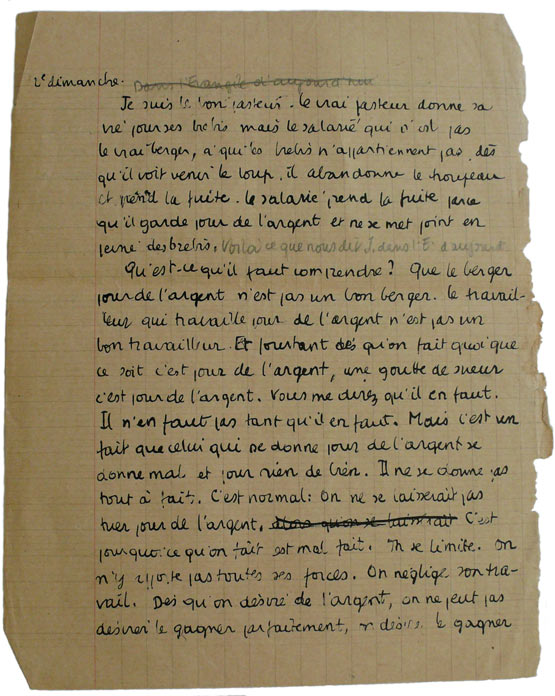 2e dimanche. Dans l'Évangile d'aujourd'hui
Je suis le bon pasteur. le vrai pasteur donne sa
vie pour ses brebis mais le salarié qui n'est pas
le vrai berger, à qui les brebis n'appartiennent pas, dès
qu'il voit venir le loup, il abandonne le troupeau
et prend la fuite. le salarié prend la fuite parce
qu'il garde pour de l'argent et ne se met point en
peine des brebis. Voilà ce que nous dit J. dans l'É. d'aujourd
Qu'est-ce qu'il faut comprendre? Que le berger
pour de l'argent n'est pas un bon berger. le travail-
leur qui travaille pour de l'argent n'est pas un
bon travailleur. Et pourtant dès qu'on fait quoi que
ce soit c'est pour de l'argent, une goutte de sueur
c'est pour de l'argent. Vous me direz qu'il en faut.
Il n'en faut pas tant qu'il en faut. Mais c'est un
fait que celui qui se donne pour de l'argent se
donne mal et pour rien de bien. Il ne se donne pas
tout à fait. C'est normal: On ne se laisserait pas
tuer pour de l'argent. Alors qu'on se laisserait C'est
pourquoi ce qu'on fait est mal fait. On se limite. On
n'y apporte pas toutes ses forces. On néglige son tra-
vail. Dès qu'on désire de l'argent, on ne peut pas
désirer le gagner parfaitement, on désire le gagner